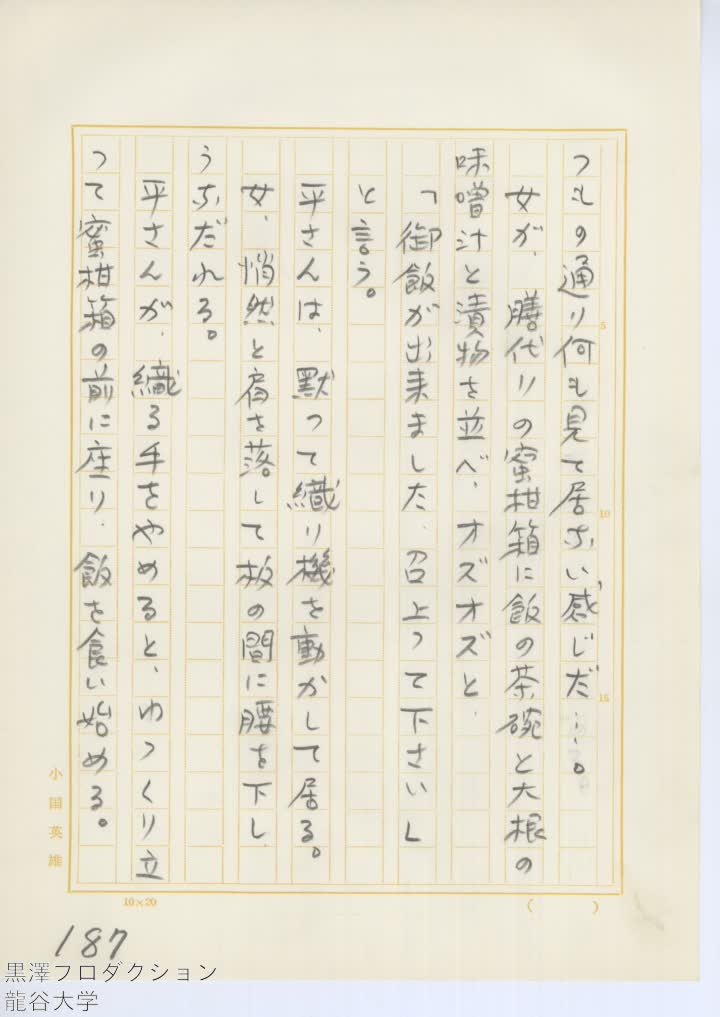 つもの通り何も見て居ない感じだ…。
女が、膳代りの蜜柑箱に飯の茶碗と大根の
味噌汁と漬物を並べ、オズオズと、
「御飯が出来ました、召上って下さい」
と言う。
平さんは、黙って織り機を動かして居る。
女、悄然と肩を落して板の間に腰を下し、
うなだれる。
平さんが、織る手をやめると、ゆっくり立
って蜜柑箱の前に座り、飯を食い始める。
5
10
15
小国英雄
10×20
( )
187
黒澤プロダクション
龍谷大学